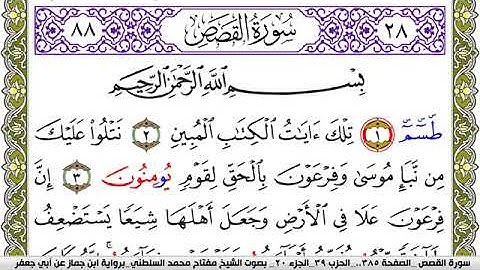 ٢٨ سُورَةُ القَصَصِ ٨٨
بِسْمِ اللَّهِ الرَّحْمَٰنِ الرَّحِيمِ
طَسٓمٓ ١ تِلْكَ ءَايَٰتُ الْكِتَٰبِ الْمُبِينِ ٢ نَتْلُوا۟ عَلَيْكَ
مِن نَّبَإِ مُوسَىٰ وَفِرْعَوْنَ بِالْحَقِّ لِقَوْمٍ يُومِنُونَ ٣ إِنَّ
فِرْعَوْنَ عَلَا فِي الْأَرْضِ وَجَعَلَ أَهْلَهَا شِيَعًا يَسْتَضْعِفُ
سورة القصص_ الصفحة ٣٨٥.._الحزب ٣٩_الجزء ٢٠_ بصوت الشيخ مفتاح محمد السلطني_برواية ابن جماز عن أبي جعفر